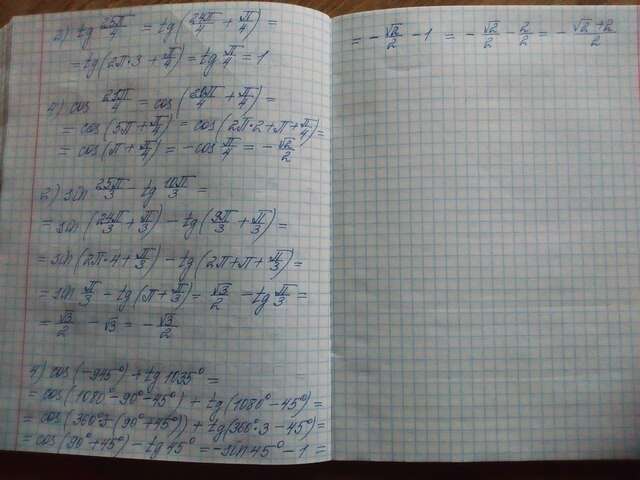 2) tg 25π/4 = tg(24π/4 + π/4) =
= tg(2π·3 + π/4) = tg π/4 = 1
4) cos 21π/4 = cos(20π/4 + π/4) =
= cos(5π + π/4) = cos(2π·2 + π + π/4) =
= cos(π + π/4) = -cos π/4 = -√2/2
2) sin 25π/3 - tg 10π/3 =
= sin(24π/3 + π/3) - tg(9π/3 + π/3) =
= sin(2π·4 + π/3) - tg(2π + π + π/3) =
= sin π/3 - tg(π + π/3) = √3/2 - tg π/3 =
= √3/2 - √3 = -√3/2
4) cos(-945°) + tg 1035° =
= cos(1080° - 90° - 45°) + tg(1080° - 45°) =
= cos(360°·3 - (90° + 45°)) + tg(360°·3 - 45°) =
= cos(90° + 45°) - tg 45° = -sin 45° - 1 =
= -√2/2 - 1 = -√2/2 - 2/2 = -√2+2/2